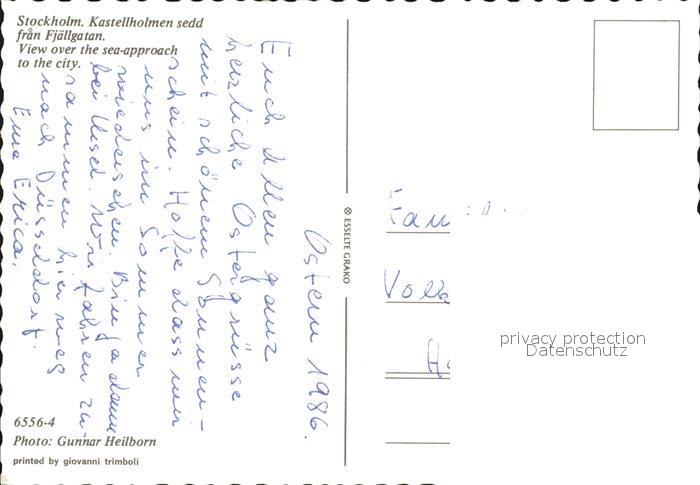 Stockholm. Kastellholmen sedd
från Fjällgatan.
View over the sea-approach
to the city.
Ostern 1986.
Euch Allen ganz
herzliche Ostergrüsse
mit schönem Sonnen-
schein. Hoffe dass wir
uns im Sommer
wiedersehen. Bin ja dann
bei Ursel. Wir fahren zu-
sammen hier weg
nach Düsseldorf.
Eure Erica.
6556-4
Photo: Gunnar Heilborn
printed by giovanni trimboli
ESSELTE GRAKO
Fam
privacy protection
Datenschutz